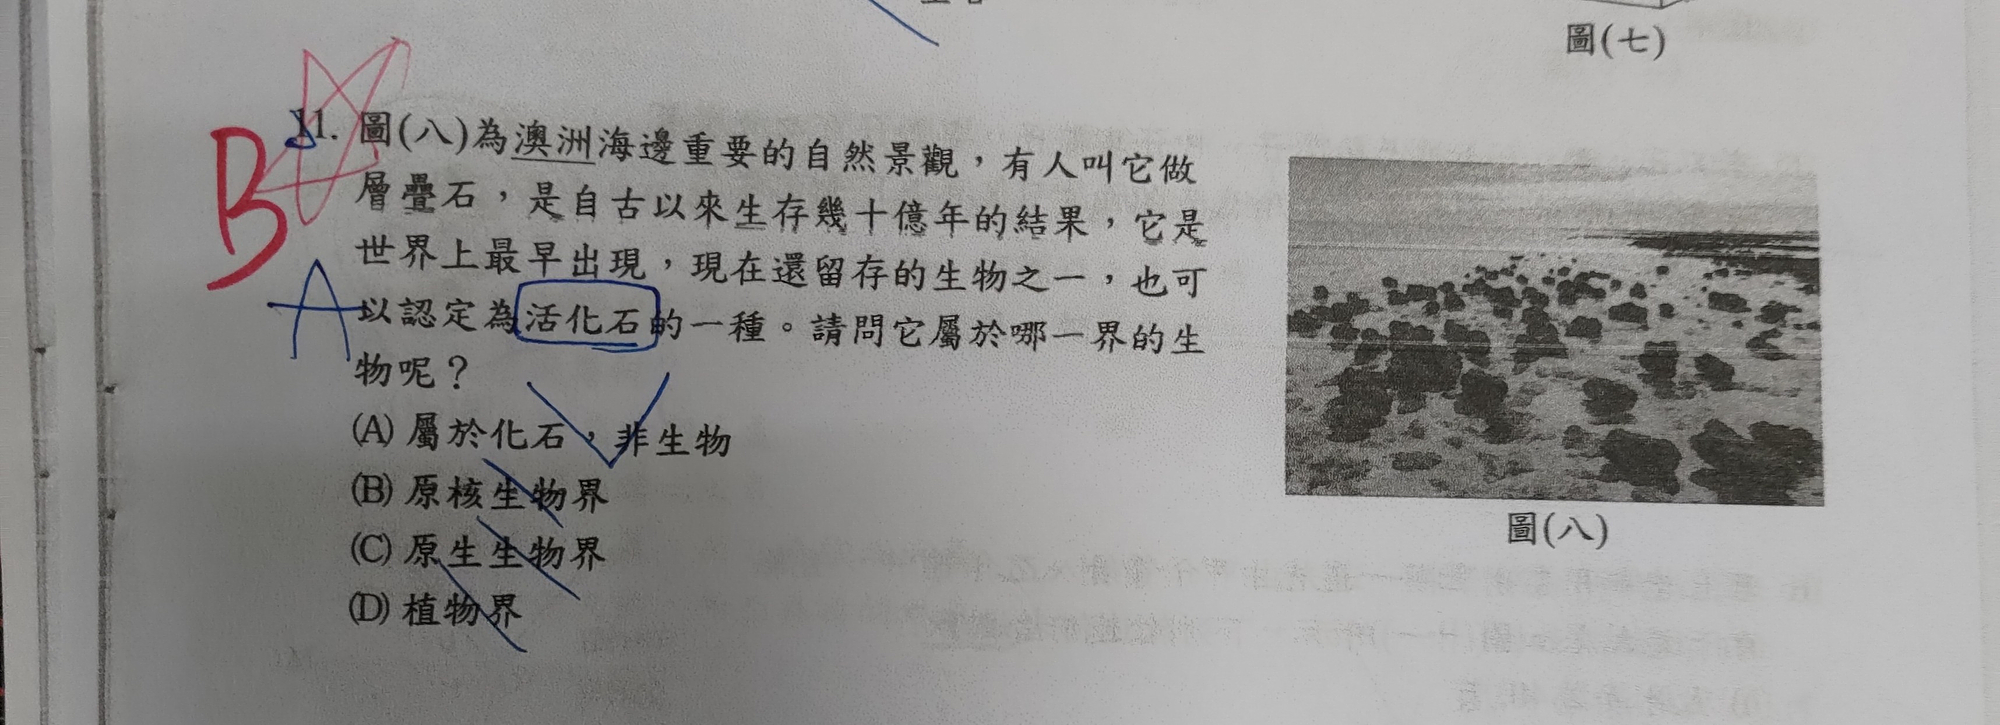 圖(七)
B
A
11. 圖(八)為澳洲海邊重要的自然景觀，有人叫它做
層疊石，是自古以來生存幾十億年的結果，它是
世界上最早出現，現在還留存的生物之一，也可
以認定為活化石的一種。請問它屬於哪一界的生
物呢？
(A) 屬於化石，非生物
(B) 原核生物界
(C) 原生生物界
(D) 植物界
圖(八)